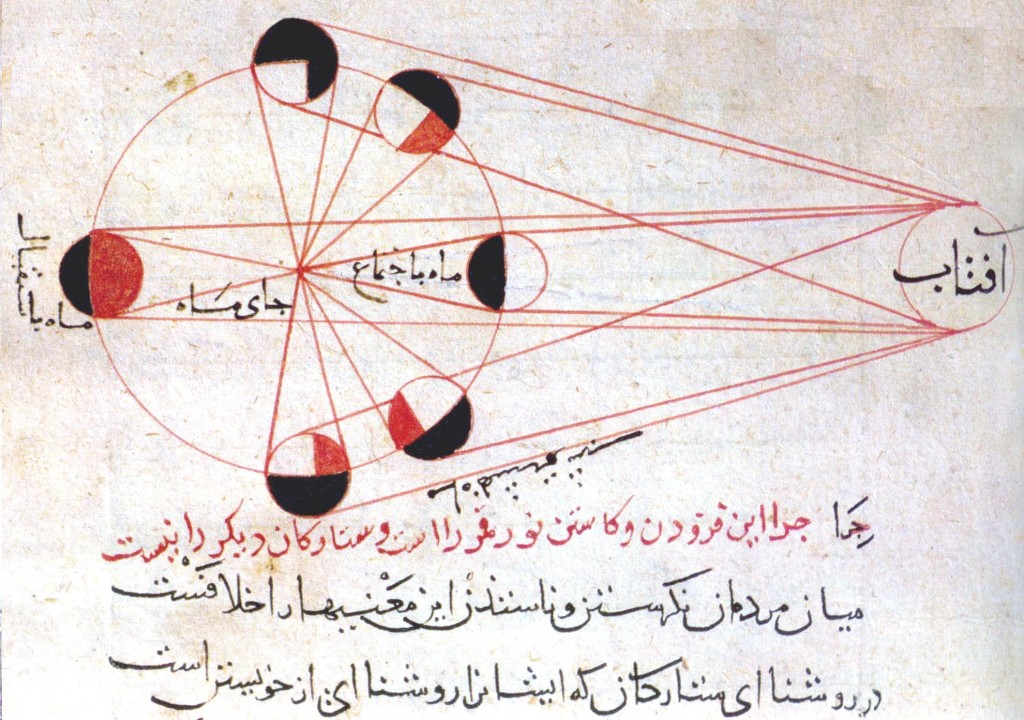 افتاب
ماه باجتماع
جای مَاه
ماه باستقبال
جرا جرا این فزودن وکاستن نور قمر را است و ستارکان دیکر را نیست
میان مردمان نکرستن این مَعْنیها را خلافَسْت
در روشنا ای ستارکان که ایشانرا روشنا ای از خویشتن است